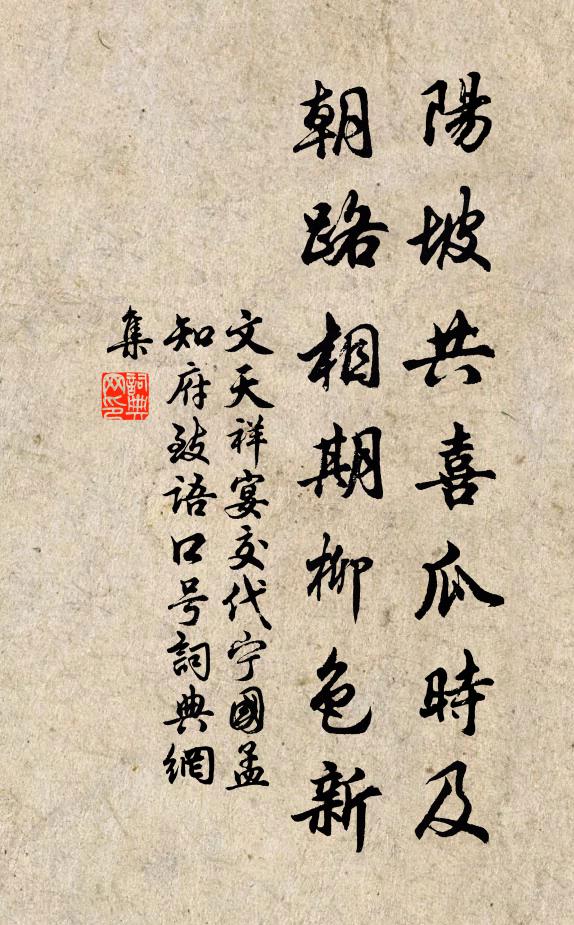 陽坡共喜瓜時及
朝路相期柳色新
文天祥宴交代宁國孟
知府致語口号詞典網
集
詞典
网印